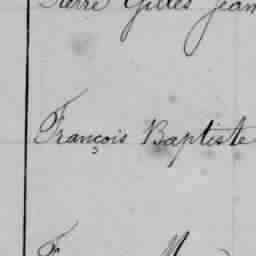 Pierre Gilles Jean
François Baptiste